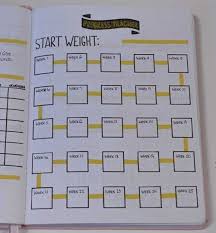 PROGRESS TRACKER
START WEIGHT:
WEEK 1 WEEK 2 WEEK 3 WEEK 4 WEEK 5
WEEK 10 WEEK 9 WEEK 8 WEEK 7 WEEK 6
WEEK 11 WEEK 12 WEEK 13 WEEK 14 WEEK 15
WEEK 20 WEEK 19 WEEK 18 WEEK 17 WEEK 16
WEEK 21 WEEK 22 WEEK 23 WEEK 24 WEEK 25